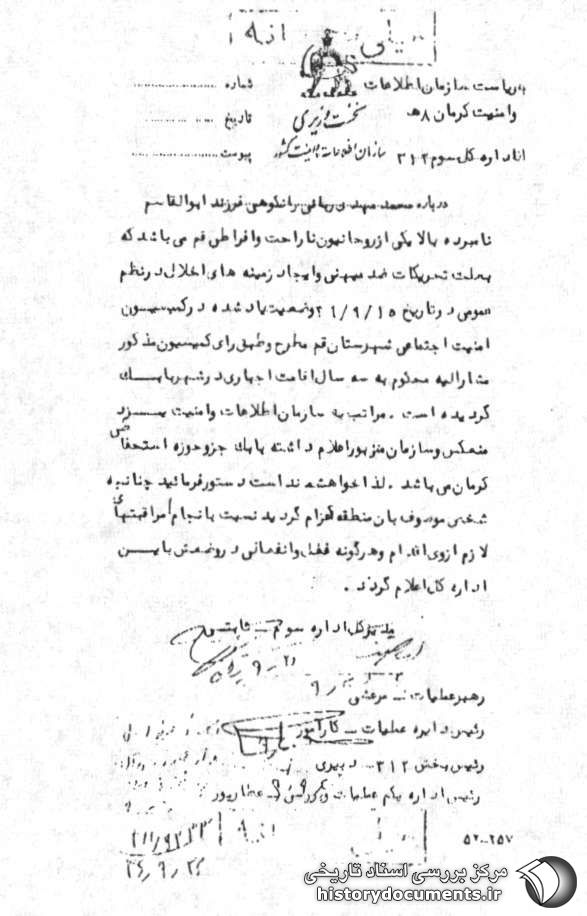 بریاست سازمان اطلاعات
وامنیت کرمان ۸هـ
ازاداره کل سوم ۳۱۲
نخست وزیری
سازمان اطلاعات وامنیت کشور
شماره
تاریخ
پیوست
درباره محمد مهدی ربانی رانکوهی فرزند ابوالقاسم
نامبرده بالا یکی ازروحانیون ناراحت وافراطی قم می باشد که
بعلت تحریکات ضد میهنی وایجاد زمینه های اخلال درنظم
عمومی درتاریخ ۲۱/۹/۱۵ وضعیت یاد شده درکمیسیون
امنیت اجتماعی شهرستان قم مطرح وطبق رای کمیسیون مذکور
مشارالیه محکوم به سه سال اقامت اجباری درشهربابک
گردیده است . مراتب به سازمان اطلاعات وامنیت یزد
منعکس وسازمان مزبوراعلام داشته بابک جزوحوزه استحفاظی
کرمان می باشد . لذا خواهشمند است دستورفرمائید چنانچه
شخص موصوف بان منطقه اعزام گردید نسبت بانجام مراقبتهای
لازم ازوی اقدام وهرگونه فعل وانفعالی درونعش باین
اداره کل اعلام گردد .
مدیرکل اداره سوم ـ ثابتی
رهبرعملیات ـ مرعشی
رئیس دایره عملیات ـ کارآموز
رئیس بخش ۳۱۲ ـ دبیری
رئیس اداره یکم عملیات وبررسی ـ عطارپور
۵۲-۲۵۷
مرکز بررسی اسناد تاریخی
historydocuments.ir